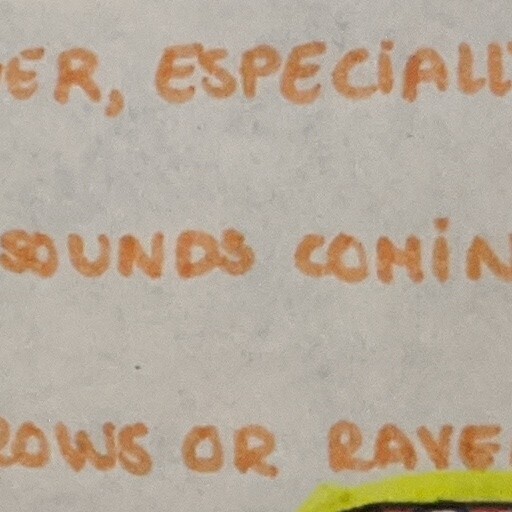 ER, ESPECIALL
SOUNDS COMIN
ROWS OR RAVE